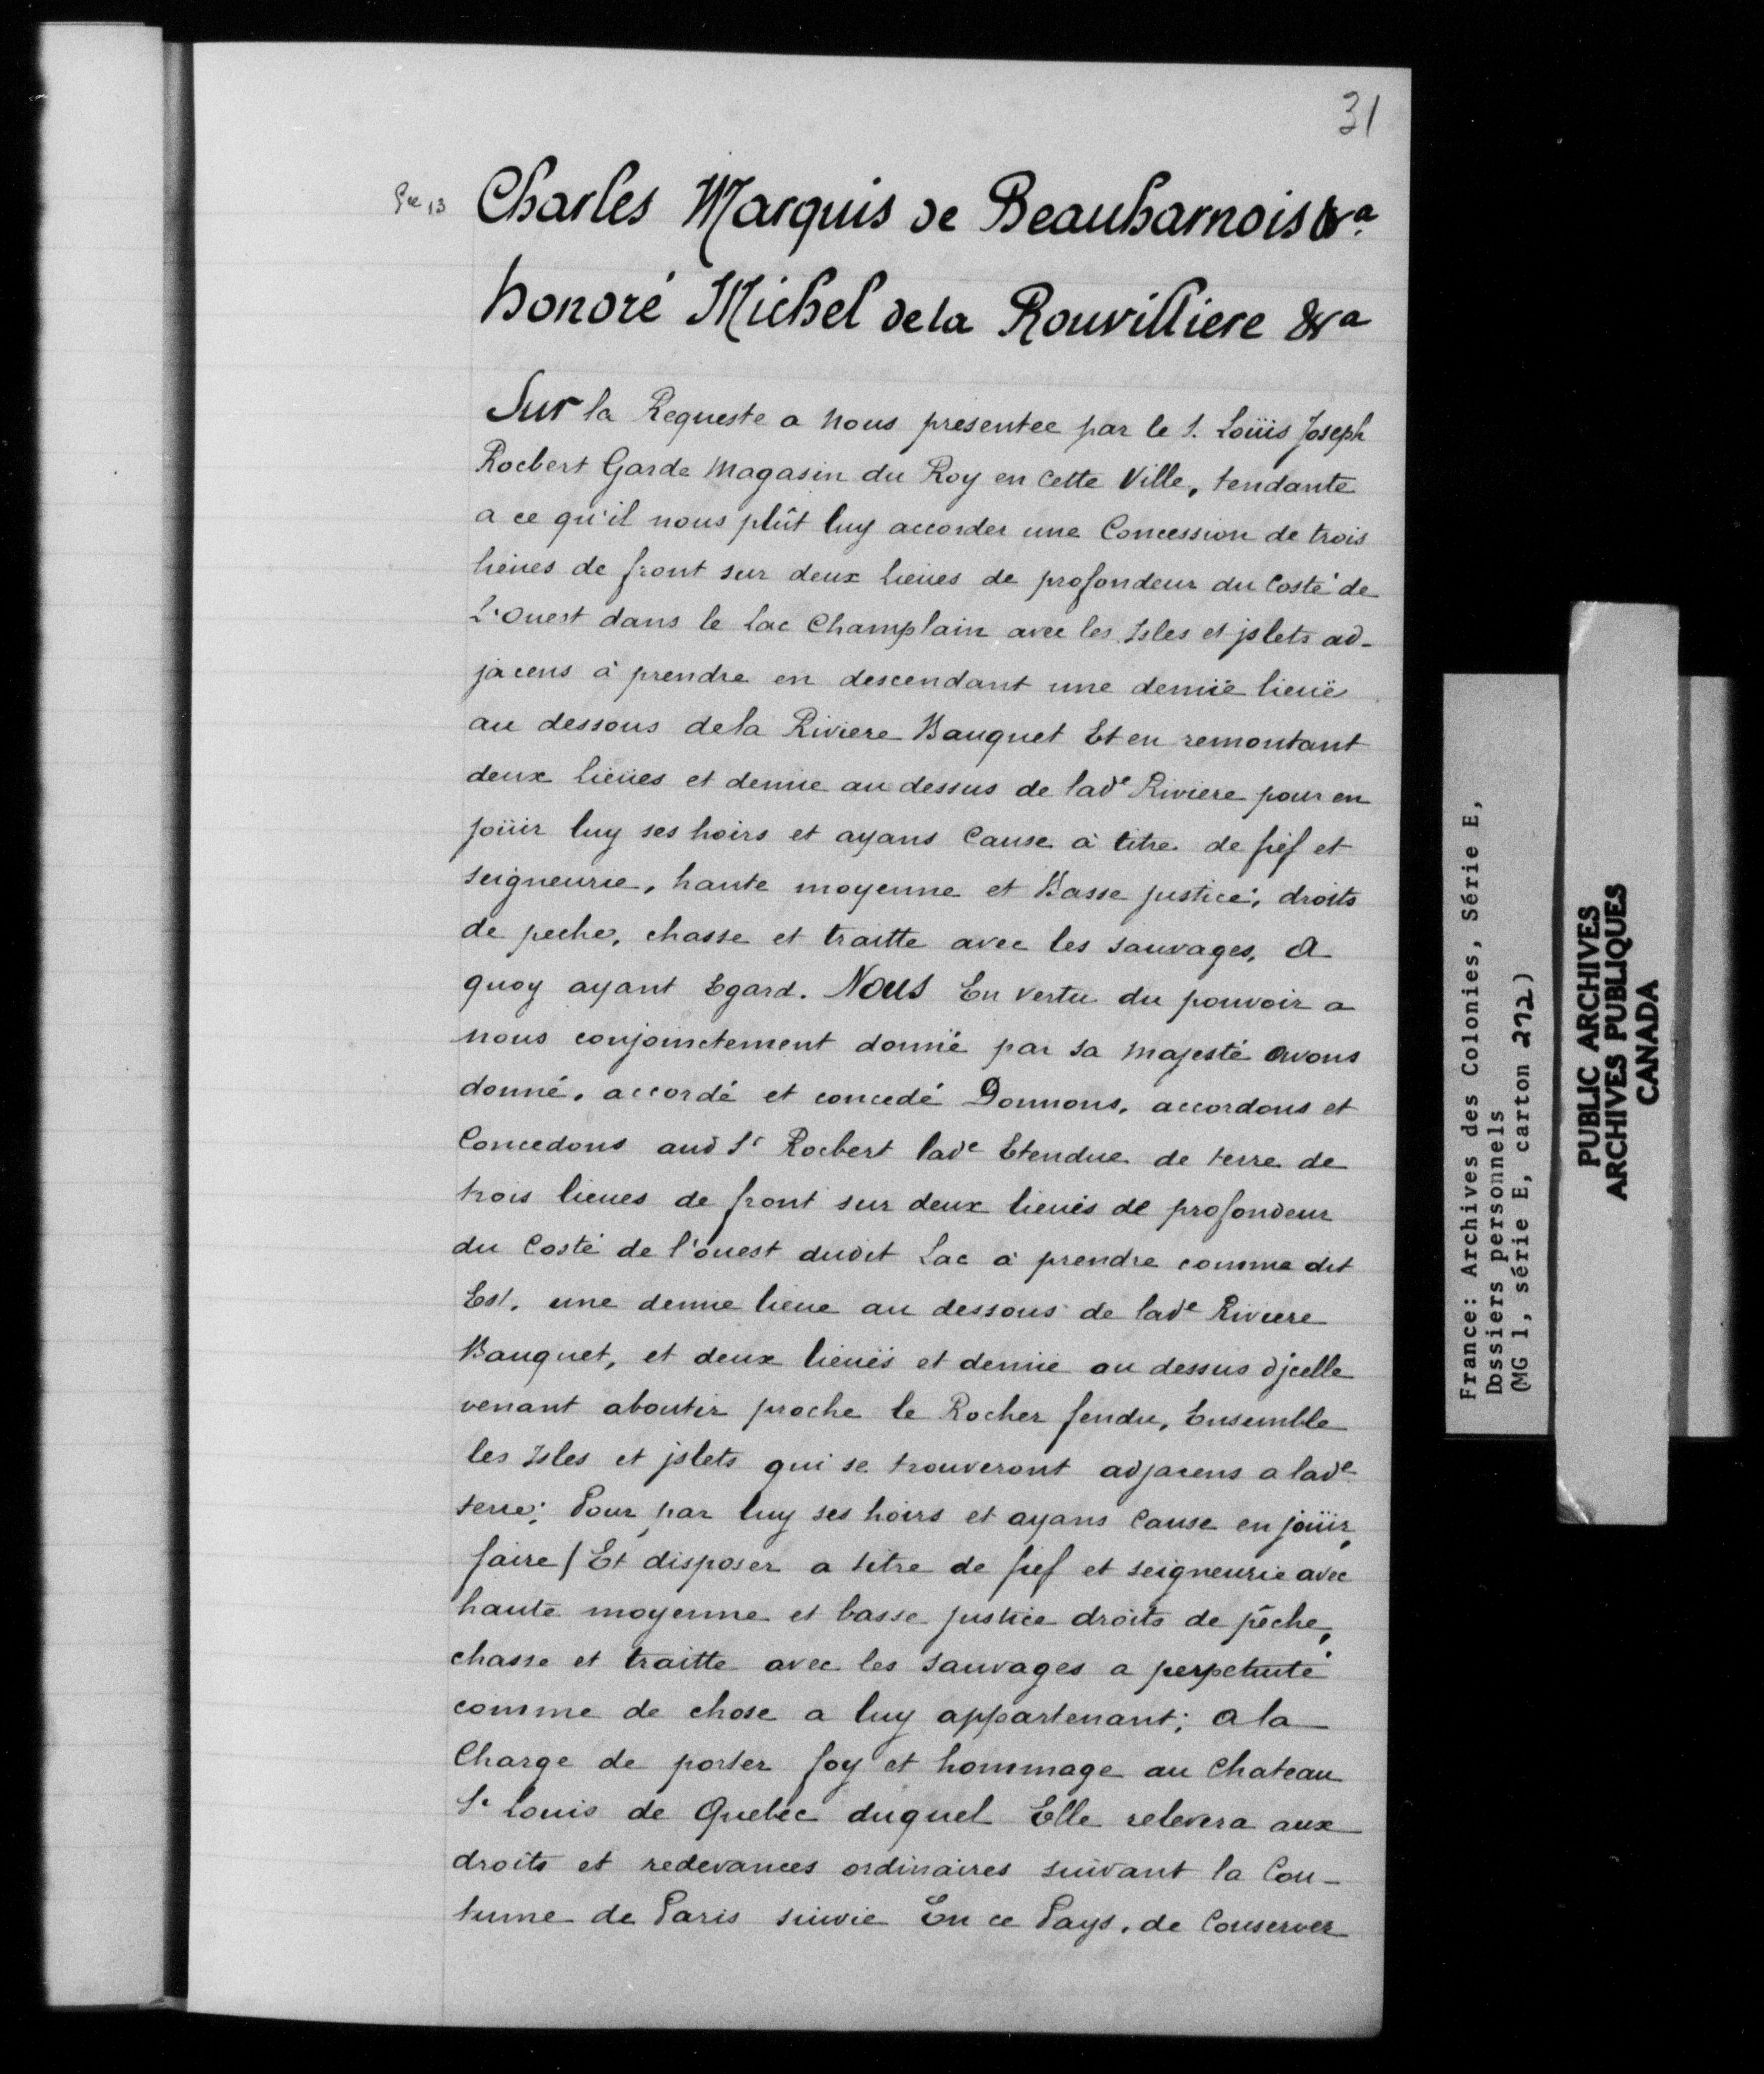 31
Pce 13
Charles Marquis de Beauharnois &ra
honoré Michel de la Rouvilliere &ra
Sur la Requeste a nous presentee par le S. Loüis Joseph
Rocbert Garde Magasin du Roy en cette Ville, tendante
a ce qu'il nous plût luy accorder une Concession de trois
lieües de front sur deux lieües de profondeur du Costé de
L'Ouest dans le Lac Champlain avec les Isles et jslets ad-
jacens à prendre en descendant une demië lieuë
au dessous de la Riviere Bauquet Et en remontant
deux lieües et demie au dessus de lad.e Riviere pour en
joüir luy ses hoirs et ayans Cause à titre de fief et
seigneurie, haute moyenne et Basse justice; droits
de peche, chasse et traitte avec les sauvages, A
quoy ayant Egard. Nous En vertu du pouvoir a
nous conjoinctement donné par sa Majesté avons
donné, accordé et concedé Donnons, accordons et
Concedons aud Sr Rocbert lade Etendue de terre de
trois lieues de front sur deux lieuës de profondeur
du Costé de l'ouest dudit Lac à prendre comme dit
Est, une demie lieue au dessous de lade Riviere
Bauquet, et deux lieuës et demie au dessus d'jcelle
venant aboutir proche le Rocher fendu, Ensemble
les Isles et jslets qui se trouveront adjacens a lade
terre; Pour par luy ses hoirs et ayans Cause en joüir,
faire / Et disposer a titre de fief et seigneurie avec
haute moyenne et basse justice droits de pêche,
chasse et traitte avec les Sauvages a perpetuité
comme de chose a luy appartenant; a la
Charge de porter foy et hommage au Chateau
St Louis de Quebec duquel Elle relevera aux
droits et redevances ordinaires suivant la Cou-
tume de Paris suivie En ce Pays, de Conserver
France: Archives des Colonies, Série E,
Dossiers personnels
(MG 1, série E, carton 272)
PUBLIC ARCHIVES
ARCHIVES PUBLIQUES
CANADA